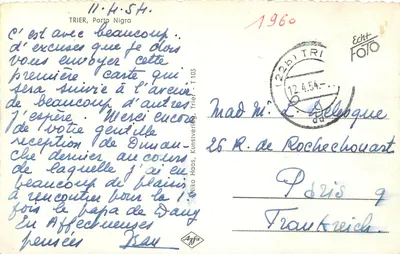 11.4.54.
TRIER, Porta Nigra
1960
c'est avec beaucoup
d'excuses que je dois
vous envoyer cette
première carte qui
sera suivie à l'avenir
de beaucoup d'autres
J'espère. Merci encore
de votre gentille
réception de Diman-
che dernier au cours
de laquelle j'ai eu
beaucoup de plaisir
à rencontrer pour la 1
fois le papa de Dany
En Affectueuses
pensées
Echt
FOTO
(22b) TRI
12.4.54
T 103
Haas, Kunstverlag, Trier
Mad M. Delogue
26 R. de Rochechouart
Paris 9
Frankreich.
Agfa